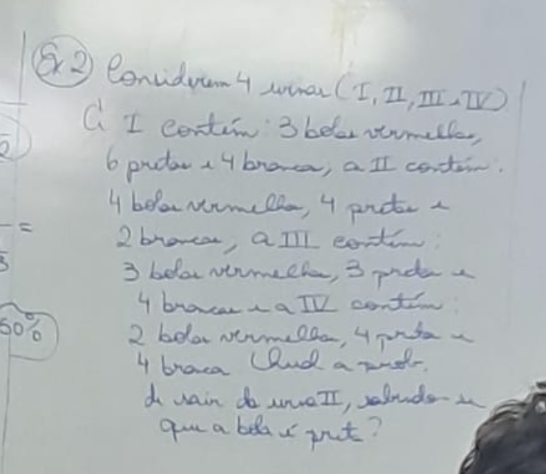 Ex 2 Considerem 4 urnas (I, II, III e IV)
A I contém: 3 bolas vermelhas,
6 pretas e 4 brancas; a II contém:
4 bolas vermelhas, 4 pretas e
2 brancas, a III contém:
3 bolas vermelhas, 3 pretas e
4 brancas e a IV contém:
2 bolas vermelhas, 4 pretas e
4 braca Qual a prob.
de sair da urna II, sabendo-se
que a bola é preta?
50%